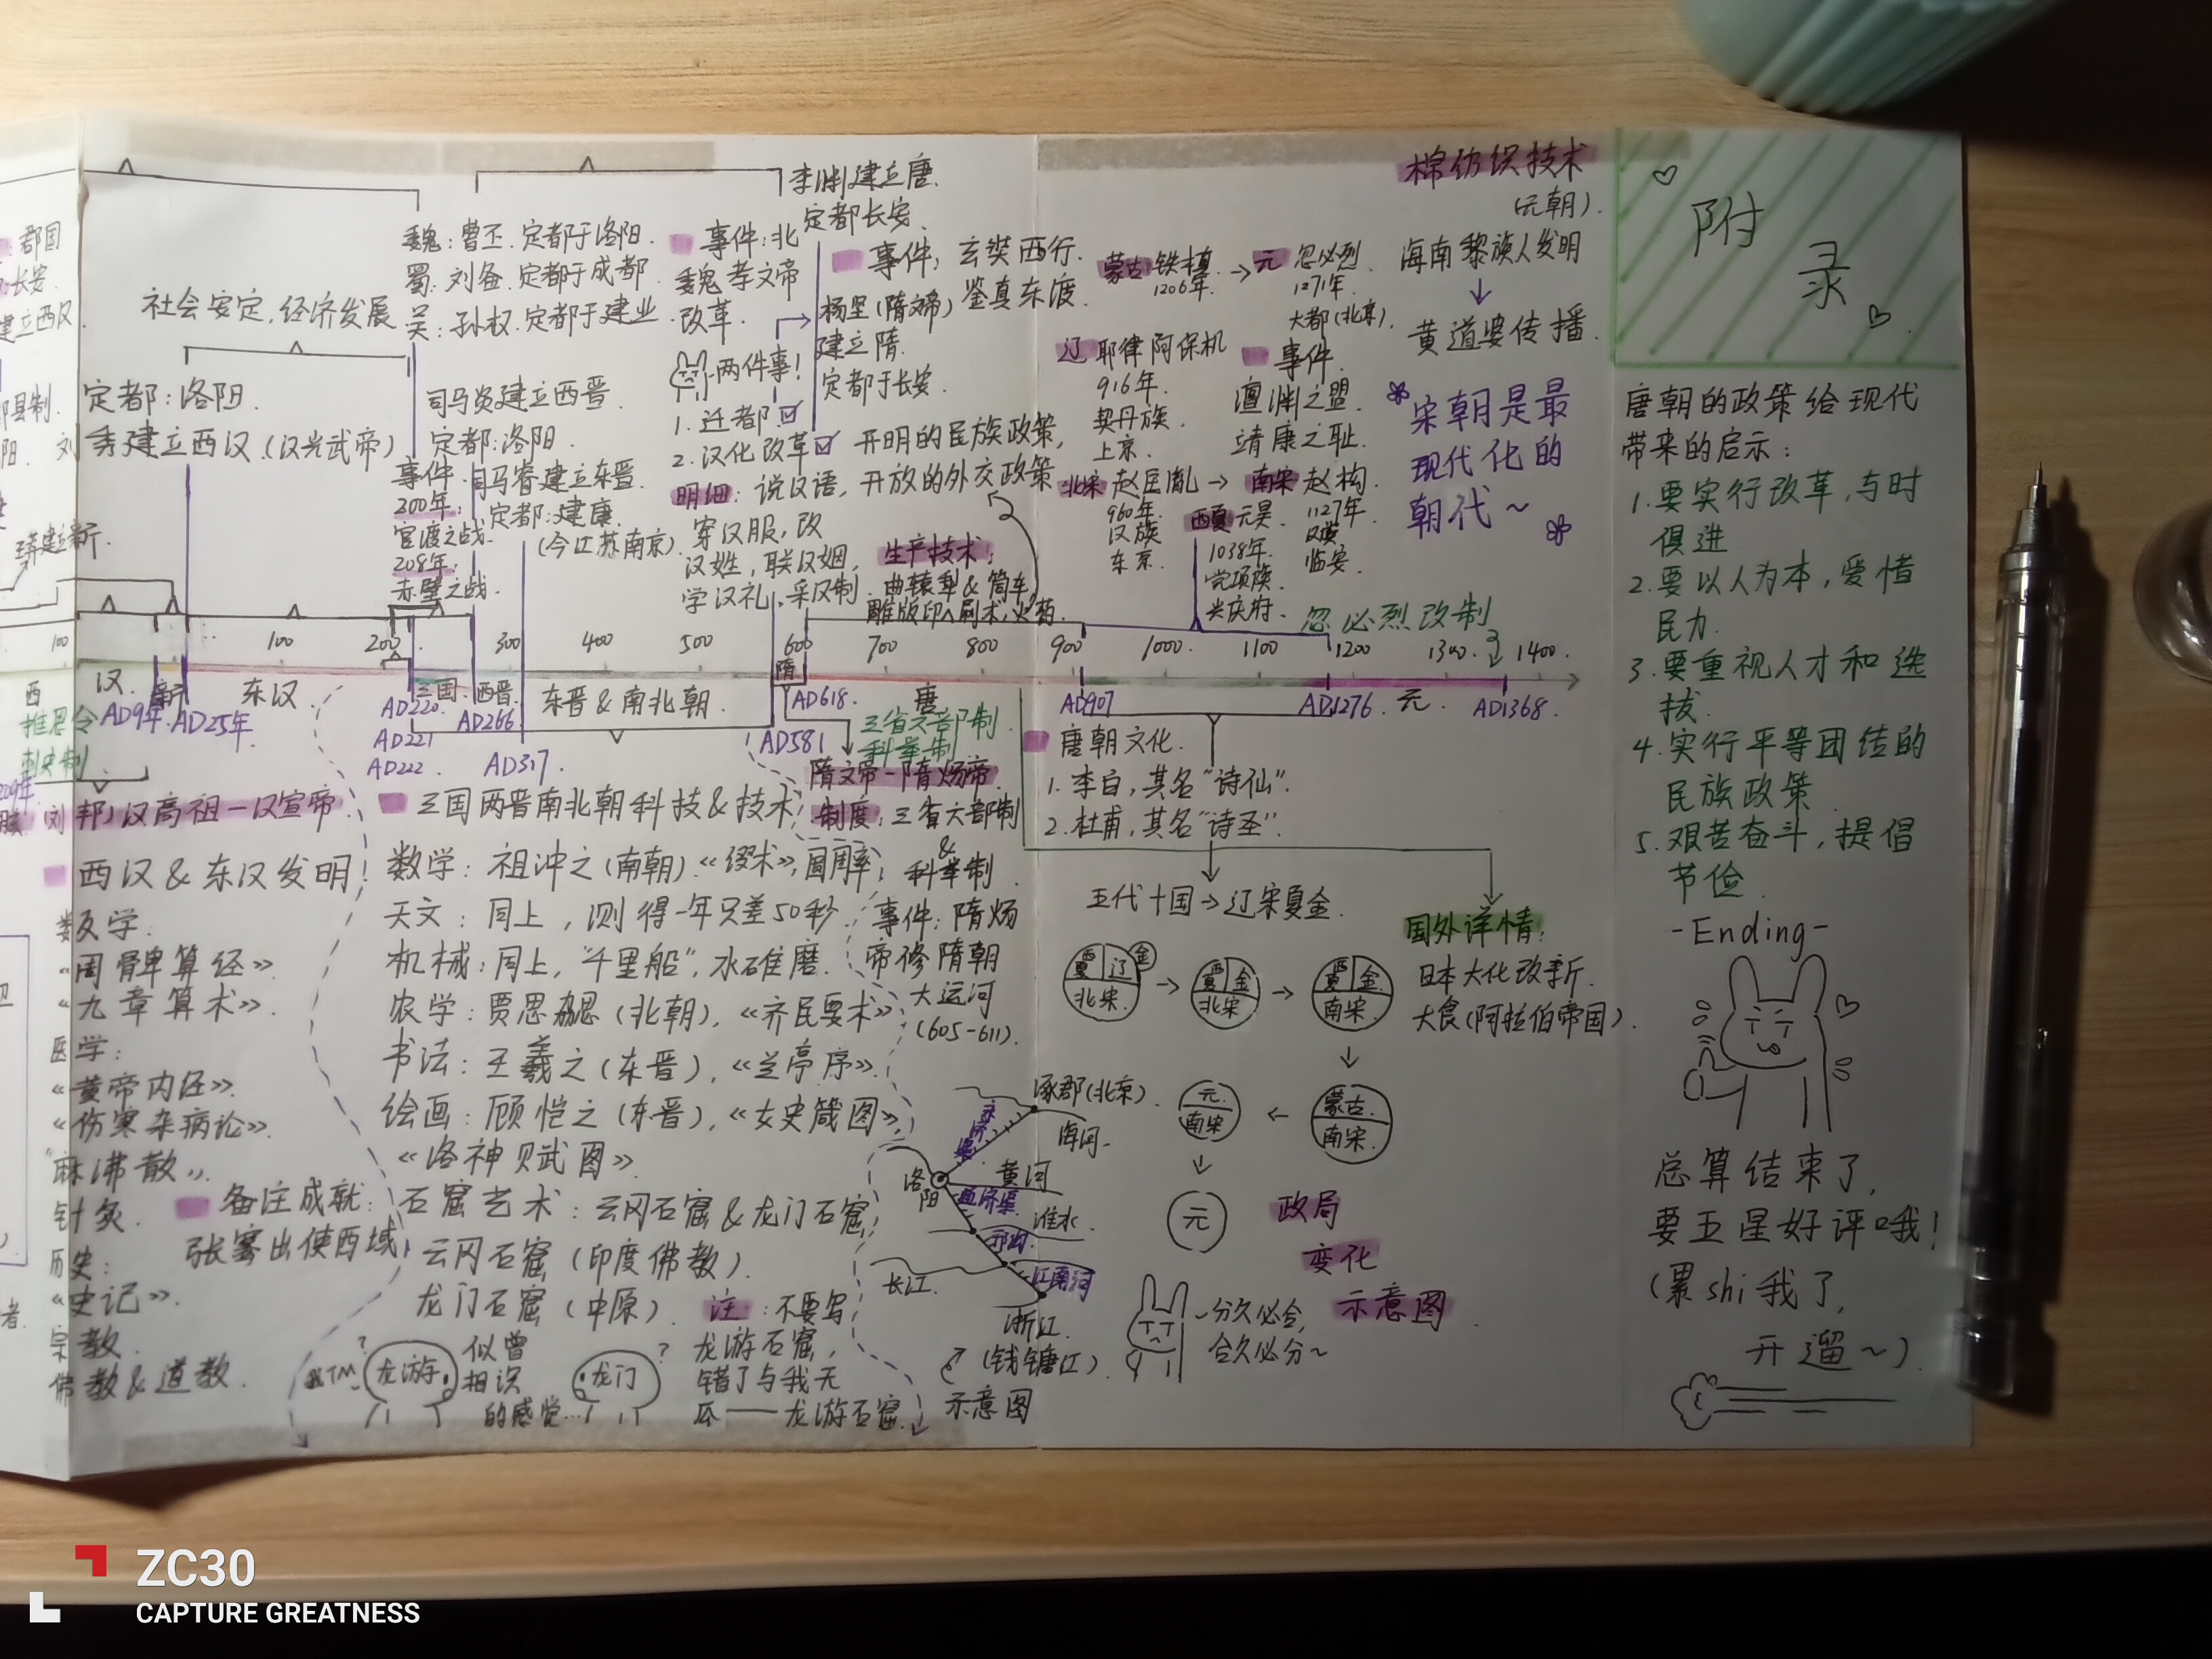 郡国
长安
建立西汉
社会安定,经济发展
魏:曹丕.定都于洛阳.
蜀:刘备.定都于成都.
吴:孙权.定都于建业.
事件:北
魏孝文帝
改革.
两件事!
1.迁都☑
2.汉化改革☑
明细:说汉语,
穿汉服,改
汉姓,联汉姻,
学汉礼,采汉制.
李渊建立唐.
定都长安.
事件:玄奘西行.
鉴真东渡.
杨坚(隋文帝)
建立隋.
定都于长安.
开明的民族政策,
开放的外交政策
生产技术:
曲辕犁&筒车,
雕版印刷术,火药.
定都:洛阳.
秀建立西汉.(汉光武帝)
司马炎建立西晋.
定都:洛阳.
事件.
200年:
官渡之战.
208年:
赤壁之战.
司马睿建立东晋.
定都:建康.
(今江苏南京).
蒙古 铁木真
1206年.
→元 忽必烈.
1271年.
大都(北京).
辽 耶律阿保机
916年.
契丹族.
上京.
事件.
澶渊之盟.
靖康之耻.
北宋 赵匡胤→
960年.
汉族
东京.
南宋 赵构.
1127年.
汉族
临安.
西夏 元昊.
1038年.
党项族.
兴庆府.
棉纺织技术
(元朝).
海南黎族人发明
↓
黄道婆传播.
宋朝是最
现代化的
朝代~
忽必烈改制
100
100
200
300
400
500
600
700
800
900
1000
1100
1200
1300
1400
西
汉
新
东汉
三国
西晋
东晋&南北朝
隋
唐
元
推恩令
刺史制
AD9年
AD25年
AD220
AD221
AD222
AD266
AD317
AD581
AD618
AD907
AD1276
AD1368
三省六部制
科举制
(刘邦)汉高祖—汉宣帝
西汉&东汉发明
数学:
《周髀算经》
《九章算术》
医学:
《黄帝内经》
《伤寒杂病论》
"麻沸散"
针灸.
历史:
《史记》.
宗教.
佛教&道教.
备注成就:
张骞出使西域
三国两晋南北朝科技&技术
数学:祖冲之(南朝)《缀术》,圆周率
天文:同上,测得一年只差50秒
机械:同上,"千里船",水碓磨.
农学:贾思勰(北朝),《齐民要术》
书法:王羲之(东晋),《兰亭序》
绘画:顾恺之(东晋),《女史箴图》
《洛神赋图》
石窟艺术:云冈石窟&龙门石窟
云冈石窟(印度佛教).
龙门石窟(中原).
龙游
似曾
相识
的感觉…
龙门
注:不要写
龙游石窟,
错了与我无
瓜——龙游石窟.
隋文帝-隋炀帝
制度:三省六部制
&
科举制
事件:隋炀
帝修隋朝
大运河
(605-611).
涿郡(北京).
永济渠
海河
洛阳
黄河
通济渠
淮水.
邗沟.
长江.
江南河
浙江.
(钱塘江)
示意图
唐朝文化.
1.李白,其名"诗仙".
2.杜甫,其名"诗圣".
五代十国→辽宋夏金.
西夏 辽 金
北宋
西夏 金
北宋
西夏 金
南宋
蒙古
南宋
元
南宋
元
政局
变化
示意图
-分久必合,
合久必分~
国外详情:
日本大化改新.
大食(阿拉伯帝国).
附
录
唐朝的政策给现代
带来的启示:
1.要实行改革,与时
俱进
2.要以人为本,爱惜
民力.
3.要重视人才和选
拔.
4.实行平等团结的
民族政策
5.艰苦奋斗,提倡
节俭.
-Ending-
总算结束了,
要五星好评哦!
(累shi我了,
开遛~)
ZC30
CAPTURE GREATNESS